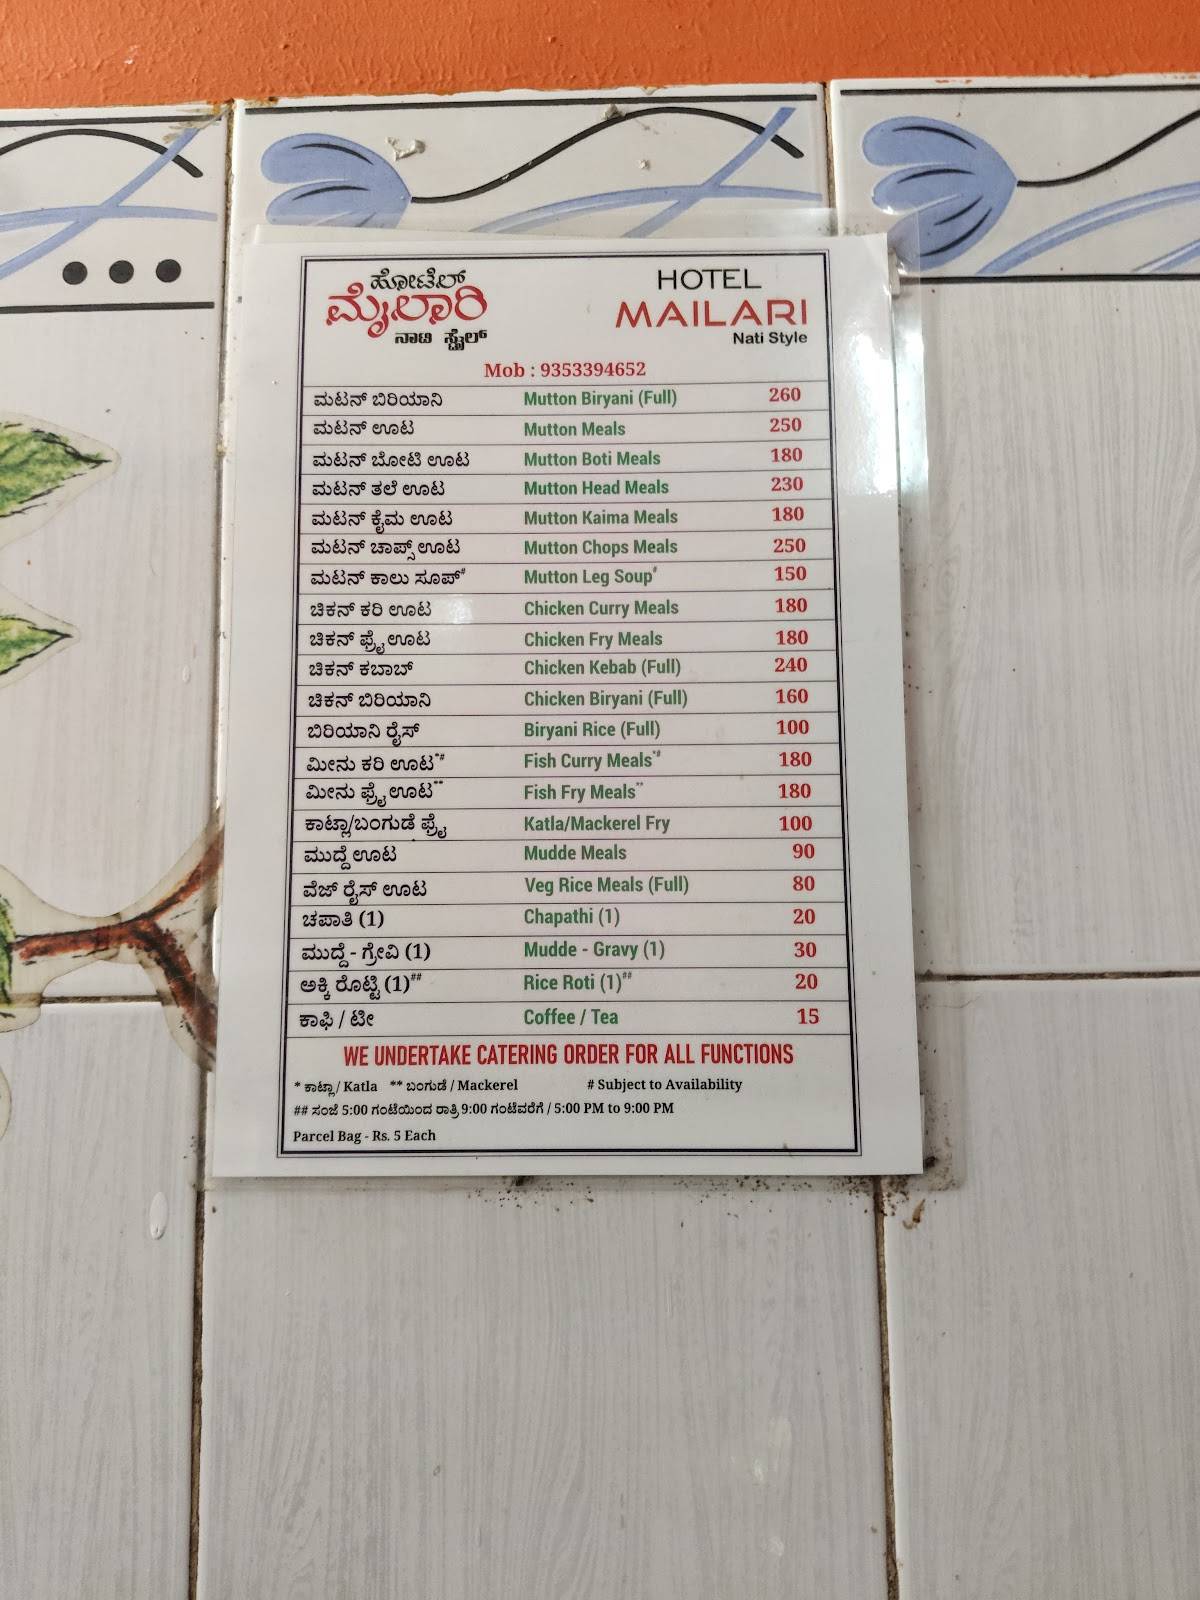 ಹೋಟೆಲ್
ಮೈಲಾರಿ
ನಾಟಿ ಸ್ಟೈಲ್
HOTEL
MAILARI
Nati Style
Mob : 9353394652
ಮಟನ್ ಬಿರಿಯಾನಿ Mutton Biryani (Full) 260
ಮಟನ್ ಊಟ Mutton Meals 250
ಮಟನ್ ಬೋಟಿ ಊಟ Mutton Boti Meals 180
ಮಟನ್ ತಲೆ ಊಟ Mutton Head Meals 230
ಮಟನ್ ಕೈಮ ಊಟ Mutton Kaima Meals 180
ಮಟನ್ ಚಾಪ್ಸ್ ಊಟ Mutton Chops Meals 250
ಮಟನ್ ಕಾಲು ಸೂಪ್# Mutton Leg Soup# 150
ಚಿಕನ್ ಕರಿ ಊಟ Chicken Curry Meals 180
ಚಿಕನ್ ಫ್ರೈ ಊಟ Chicken Fry Meals 180
ಚಿಕನ್ ಕಬಾಬ್ Chicken Kebab (Full) 240
ಚಿಕನ್ ಬಿರಿಯಾನಿ Chicken Biryani (Full) 160
ಬಿರಿಯಾನಿ ರೈಸ್ Biryani Rice (Full) 100
ಮೀನು ಕರಿ ಊಟ*# Fish Curry Meals*# 180
ಮೀನು ಫ್ರೈ ಊಟ** Fish Fry Meals** 180
ಕಾಟ್ಲಾ/ಬಂಗುಡೆ ಫ್ರೈ Katla/Mackerel Fry 100
ಮುದ್ದೆ ಊಟ Mudde Meals 90
ವೆಜ್ ರೈಸ್ ಊಟ Veg Rice Meals (Full) 80
ಚಪಾತಿ (1) Chapathi (1) 20
ಮುದ್ದೆ - ಗ್ರೇವಿ (1) Mudde - Gravy (1) 30
ಅಕ್ಕಿ ರೊಟ್ಟಿ (1)## Rice Roti (1)## 20
ಕಾಫಿ / ಟೀ Coffee / Tea 15
WE UNDERTAKE CATERING ORDER FOR ALL FUNCTIONS
* ಕಾಟ್ಲಾ / Katla ** ಬಂಗುಡೆ / Mackerel # Subject to Availability
## ಸಂಜೆ 5:00 ಗಂಟೆಯಿಂದ ರಾತ್ರಿ 9:00 ಗಂಟೆವರೆಗೆ / 5:00 PM to 9:00 PM
Parcel Bag - Rs. 5 Each